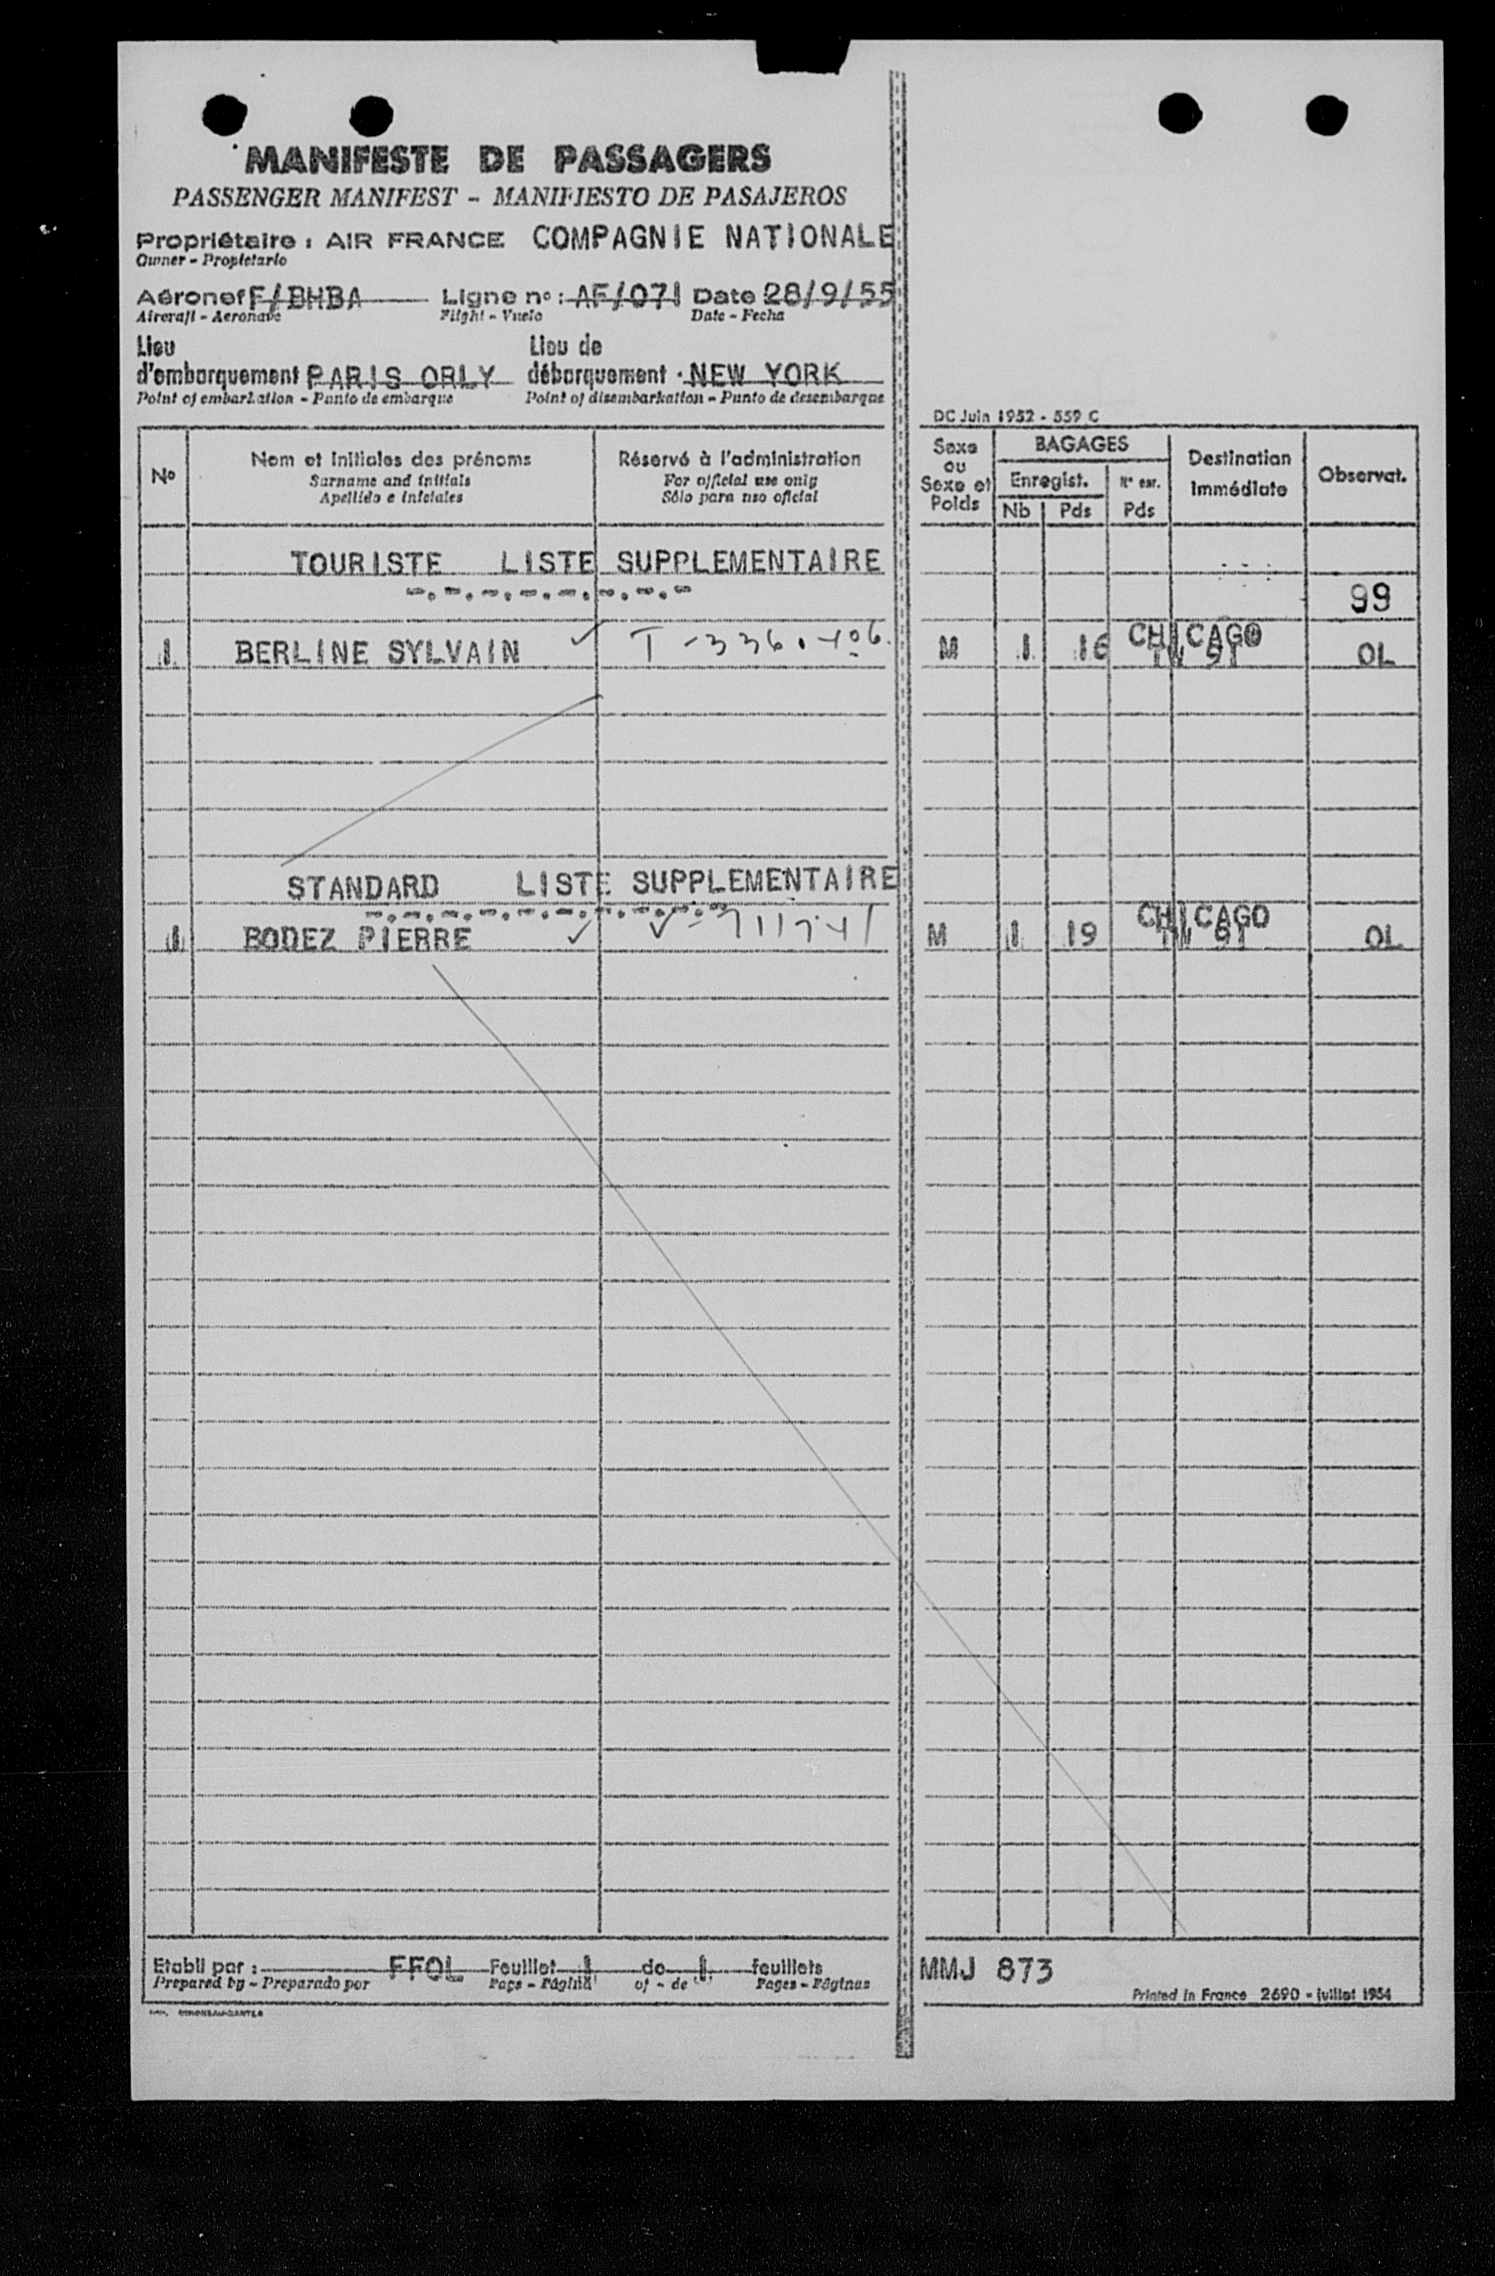 MANIFESTE DE PASSAGERS
PASSENGER MANIFEST - MANIFIESTO DE PASAJEROS
Propriétaire : AIR FRANCE COMPAGNIE NATIONALE
Owner - Propietario
Aéronef F/BHBA Ligne no : AF/071 Date 28/9/55
Aircraft - Aeronave Flight - Vuelo Date - Fecha
Lieu Lieu de
d'embarquement PARIS ORLY débarquement . NEW YORK
Point of embarkation - Punto de embarque Point of disembarkation - Punto de desembarque
DC Juin 1952 - 559 C
No
Nom et initiales des prénoms
Surname and initials
Apellido e iniciales
Réservé à l'administration
For official use only
Sólo para uso oficial
Sexe
ou
Sexe et
Poids
BAGAGES
Enregist.
Nb Pds
Pds
Destination
immédiate
Observat.
TOURISTE LISTE SUPPLEMENTAIRE
99
1 BERLINE SYLVAIN ✓ T-336.406. M 1 16 CHICAGO OL
TW 91
STANDARD LISTE SUPPLEMENTAIRE
1 BODEZ PIERRE ✓ M 1 19 CHICAGO OL
TW 91
Etabli par : FFOL Feuillet 1 de 1 feuillets
Prepared by - Preparado por Page - Página of - de Pages - Páginas
MMJ 873
Printed in France 2690 - juillet 1954